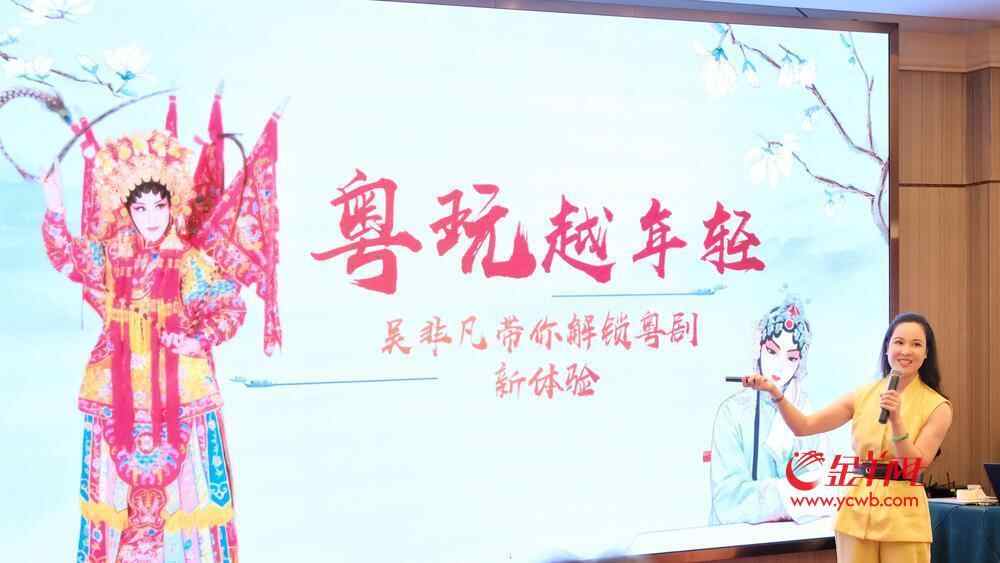 粤玩越年轻
吴非凡带你解锁粤剧
新体验
金羊网
www.ycwb.com